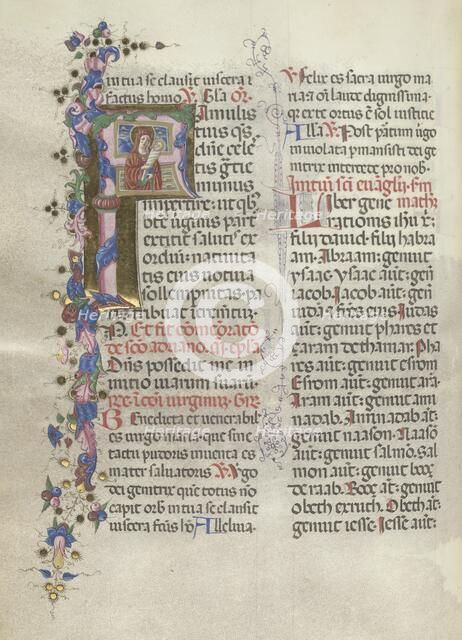 in tua se clausit viscera
factus homo. V. Gl'a Or.
Famulis
tuis q's
d'ne cele
stis gr'tie
munus
impertire: ut qb'
be virginis part'
extitit salutis ex
ordiu': nativita
tis eius votiva
sollempnitas pa
Et fit comemorato
de sco adriano.
D'ns possedit me in
initio viarum suaru'
Benedicta et venerabil'
es virgo maria: que sine
tactu pudoris inventa es
mater salvatoris V. Virgo
dei genitrix que totus no'
capit orb' in tua se clausit
viscera fc'us ho' Alleluia.
V. Felix es sacra virgo ma
ria: 7 o'i laude dignissima
q' ex te ortus e' sol iustitie
All'a V. Post partum v'go
inviolata p'mansisti dei ge
nitrix intercede pro nob.
Initiu' s'ci eua'g'lij. S'm
math'
Liber gene
rationis ihu x'
filij david: filij habra
am. Abraam: genuit
ysaac. ysaac aut': gen'
iacob. Iacob aut': genu'
iudam: fr'es eius. Iudas
aut': genuit phares et
zaram de thamar. Pha
res aut': genuit esrom
Esrom aut': genuit ara'
Aram aut': genuit ami
nadab. Aminadab aut':
genuit naason. Naaso'
aut': genuit salmo'. Sal
mon aut': genuit booz
de raab. Booz aut': genuit
obeth ex ruth. Obeth at':
genuit iesse. Iesse aut':
Heritage
Heritage
Heritage
Heritage